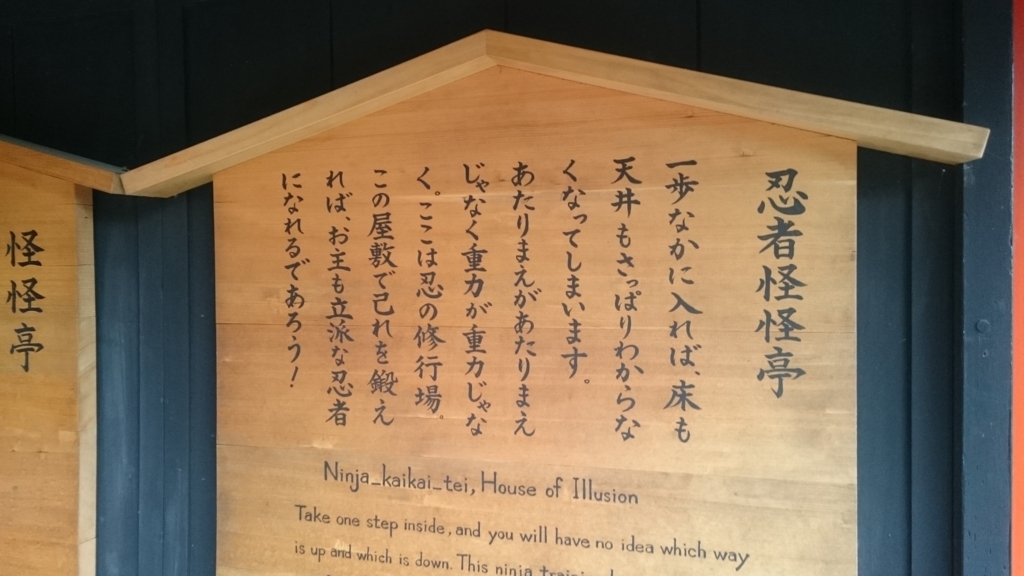 忍者怪怪亭
一歩なかに入れば、床も
天井もさっぱりわからな
くなってしまいます。
あたりまえがあたりまえ
じゃなく重力が重力じゃな
く。ここは忍の修行場。
この屋敷で己れを鍛え
れば、お主も立派な忍者
になれるであろう!
Ninja_kaikai_tei, House of Illusion
Take one step inside, and you will have no idea which way
is up and which is down. This ninja
怪怪亭